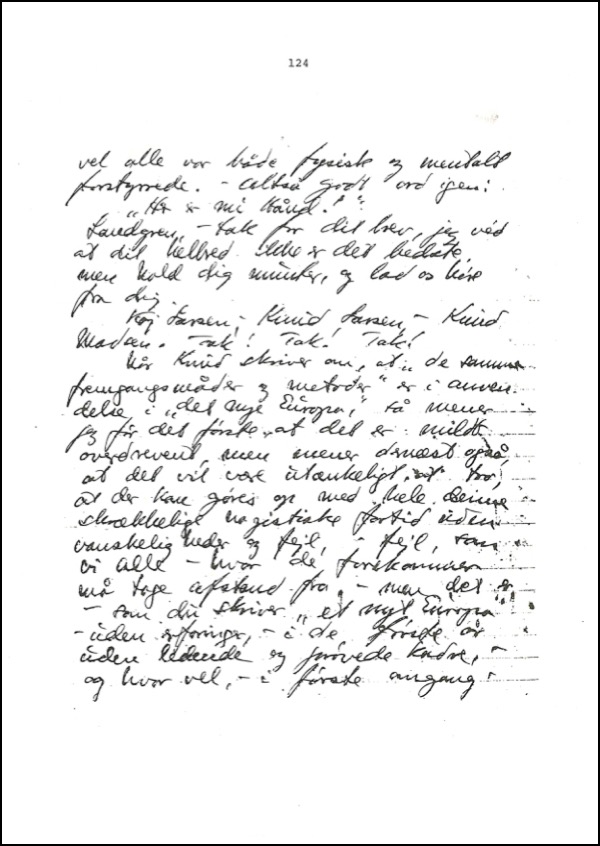 124
vel alle var både fysisk og mentalt
forstyrrede. - Altså godt ord igen:
"Her er mi Hånd!"
Landgren, - tak for dit brev, jeg véd
at dit helbred ikke er det bedste,
men hold dig munter, og lad os høre
fra dig.
Kaj Larsen, - Knud Larsen, - Knud
Madsen. Tak! Tak! Tak!
Når Knud skriver om, at "de samme
fremgangsmåder og metoder" er i anven
delse i "det nye Europa", så mener
jeg for det første, at det er mildt
overdrevent, men mener dernæst også,
at det vil være utænkeligt at tro,
at der kan gøres op med hele denne
skrækkelige nazistiske fortid uden
vanskeligheder og fejl, - fejl, som
vi alle - hvor de forekommer
må tage afstand fra, - men det er
- som du skriver "et nyt Europa"
- uden erfaringer, - i de første år
uden ledende og prøvede kadre, -
og hvor vel, - i første omgang -